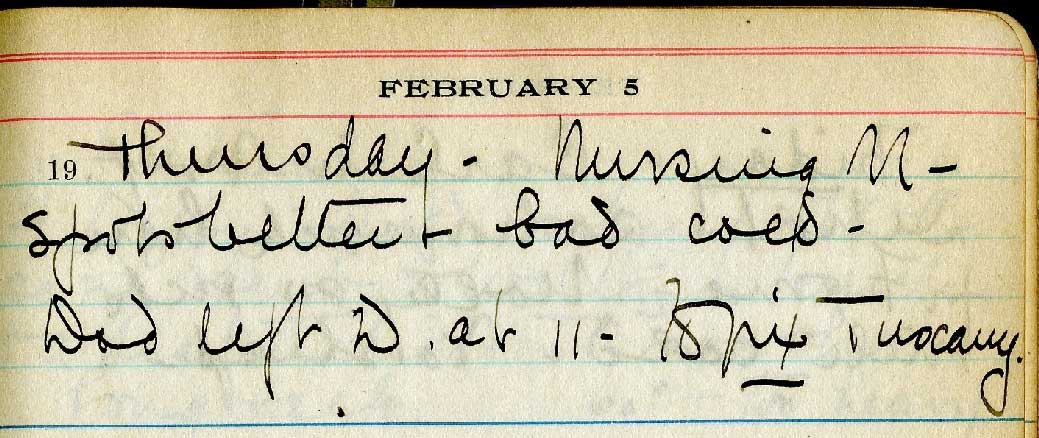 FEBRUARY 5
19 Thursday - Nursing N-
Spots better - bad cold -
Dad left D. at 11 - pix Tuscany.